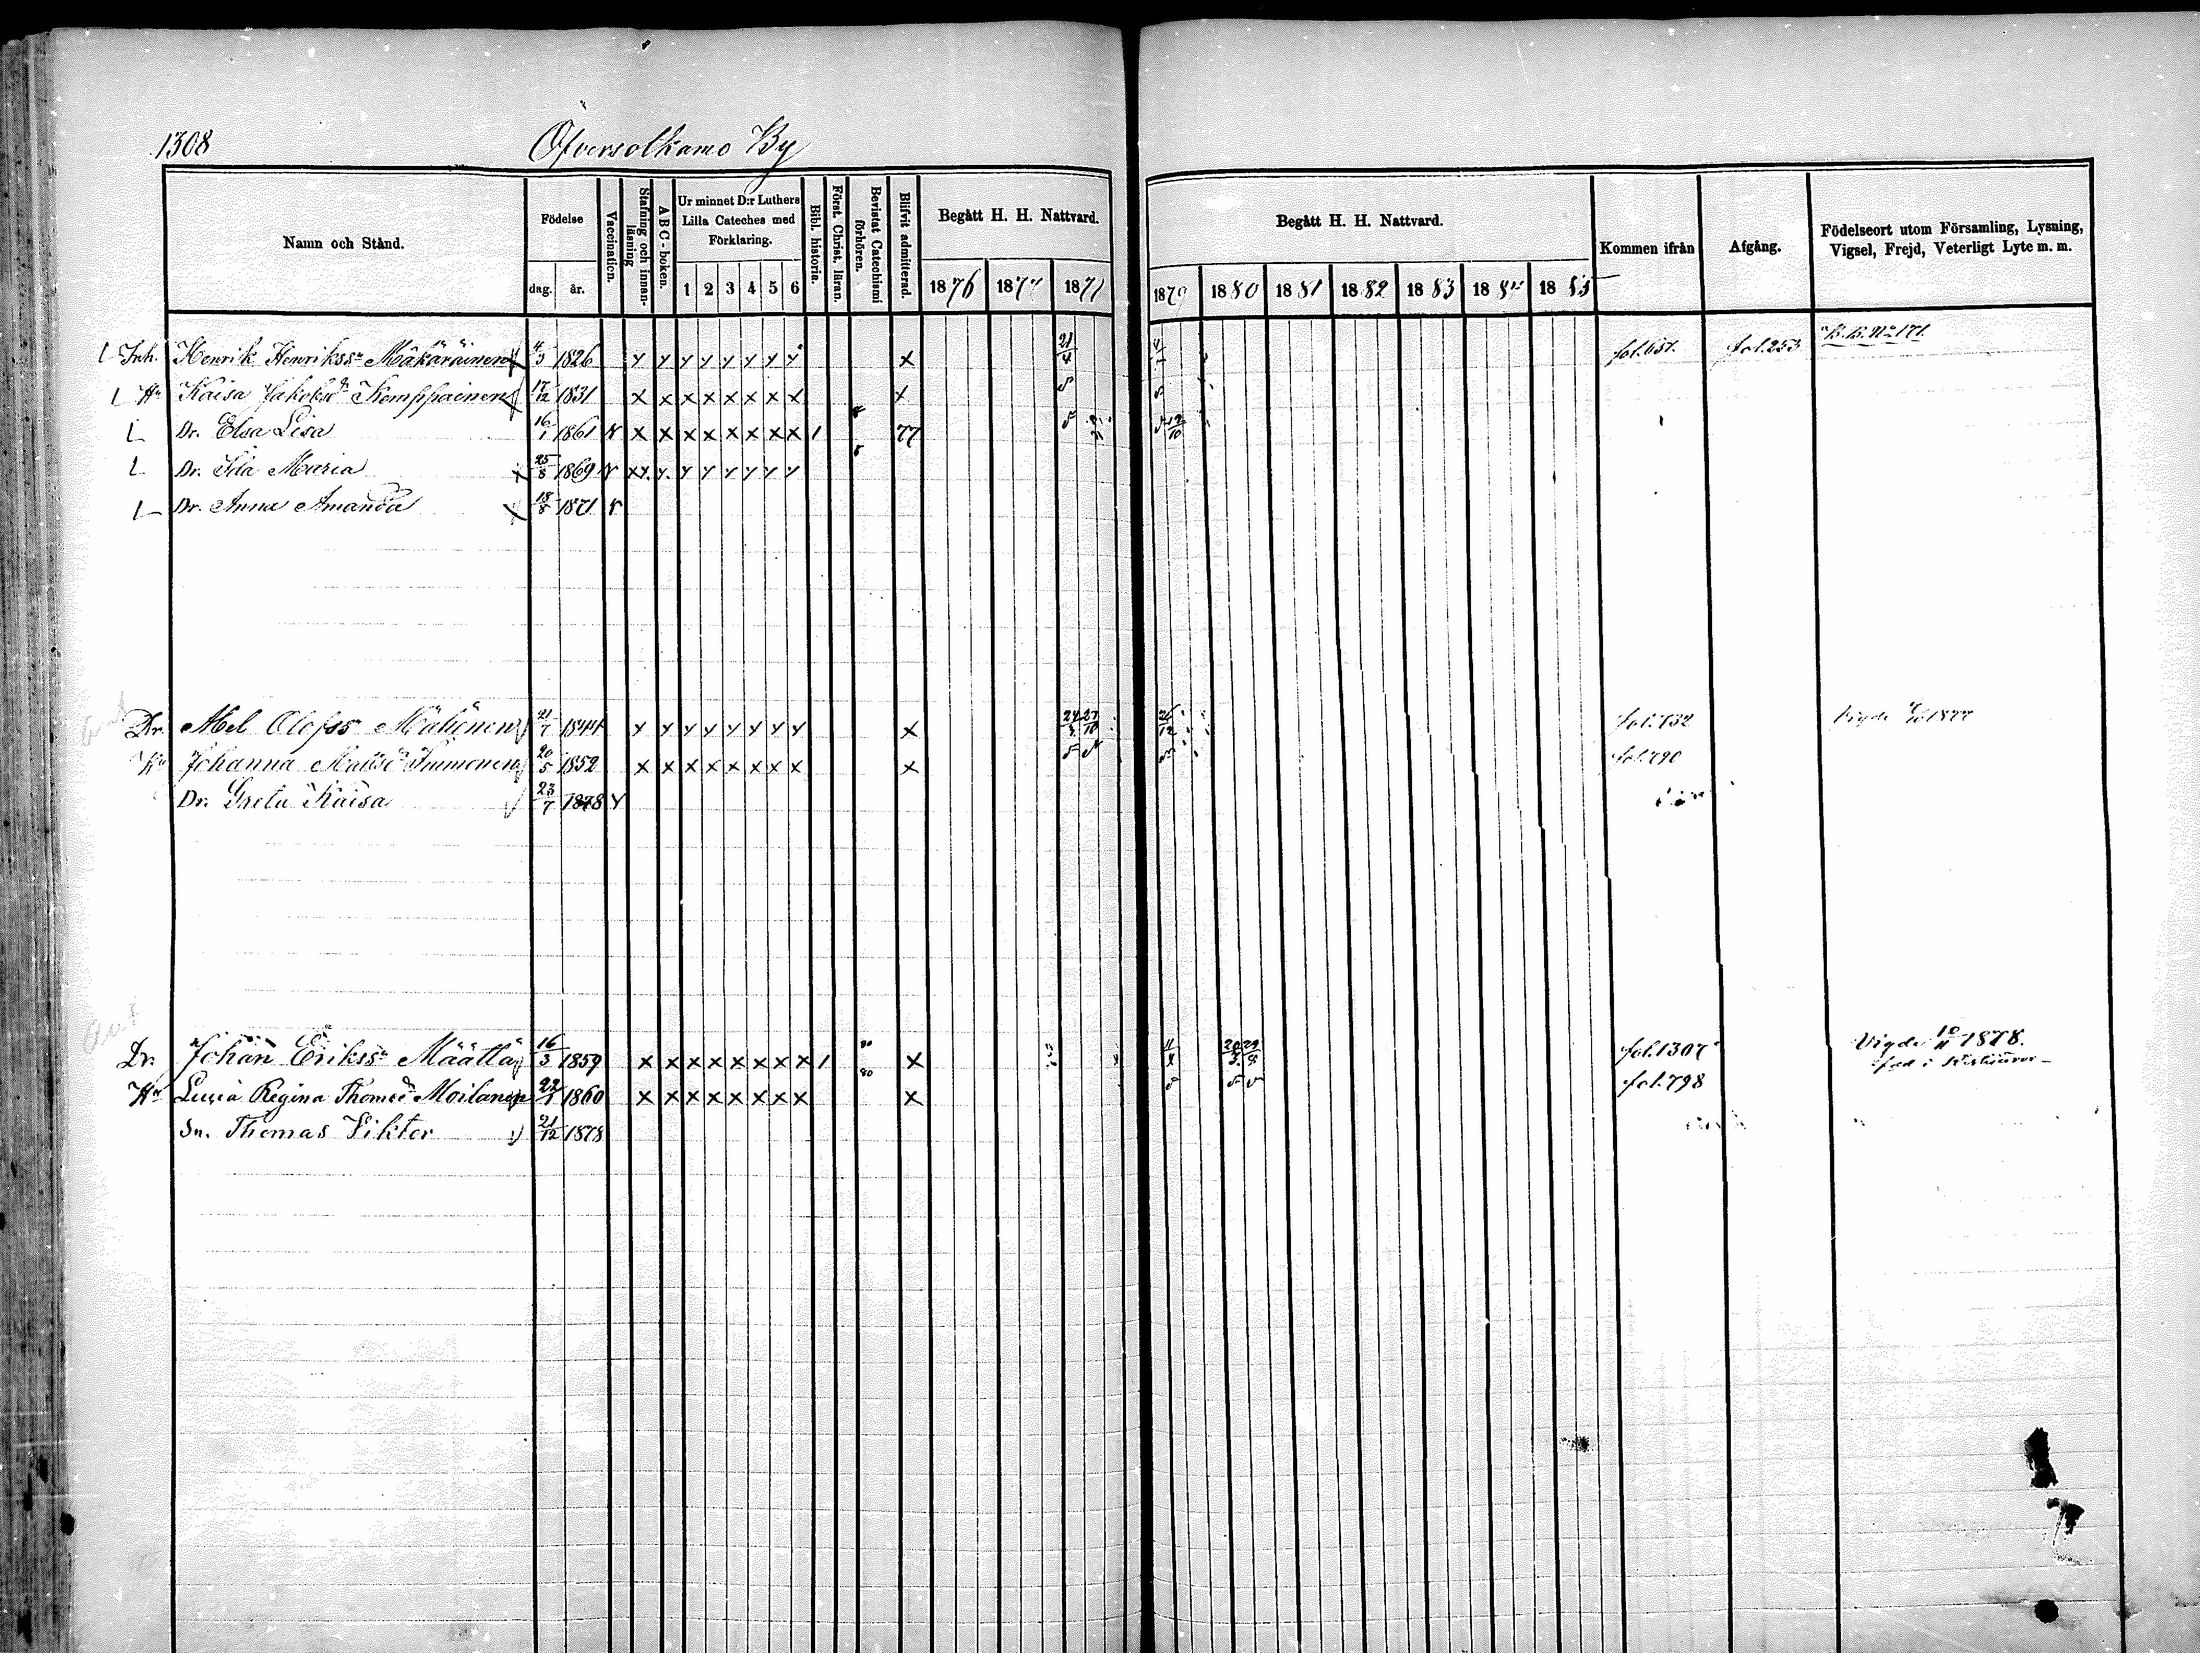 1308 Öfversotkamo By
Namn och Stånd. Födelse dag. år. Vaccination. Stafning och innanläsning ABC-boken. Ur minnet D:r Luthers Lilla Cateches med Förklaring. 1 2 3 4 5 6 Bibl. historia. Först. Christ. läran. Bevistat Catechismi förhören. Blifvit admitterad. Begått H. H. Nattvard. 1876 1877 Begått H. H. Nattvard. 1879 1880 1881 1882 1883 1884 1885 Kommen ifrån Afgång. Födelseort utom Församling, Lysning, Vigsel, Frejd, Veterligt Lyte m. m.
Inh. Henrik Henrikss. Mäkäräinen 1826 x 21/4 fol. 651. fol. 253 B. B. No 171.
Hu Kaisa Jakobsd. Kemppainen 17/12 1831 x x x x x x x x x
Dr. Elsa Lisa 16/1 1861 x x x x x x x x 1 77 12/10
Dr. Ida Maria 25/8 1869
Dr. Anna Amanda 18/8 1871
Dr. Abel Olofss. 21/7 1844 x fol. 732 Vigde 1877
Hu Johanna Immonen 20/5 1852 x x x x x x x x x fol. 790
Dr. Greta Kaisa 23/7 1878
Dr. Johan Erikss. Määttä 16/3 1859 x x x x x x x x 1 80 80 x fol. 1307 Vigde 10/11 1878.
Hu Lucia Regina Thomasd. Moilanen 1860 x x x x x x x x x fol. 798
Sn. Thomas Viktor 21/12 1878